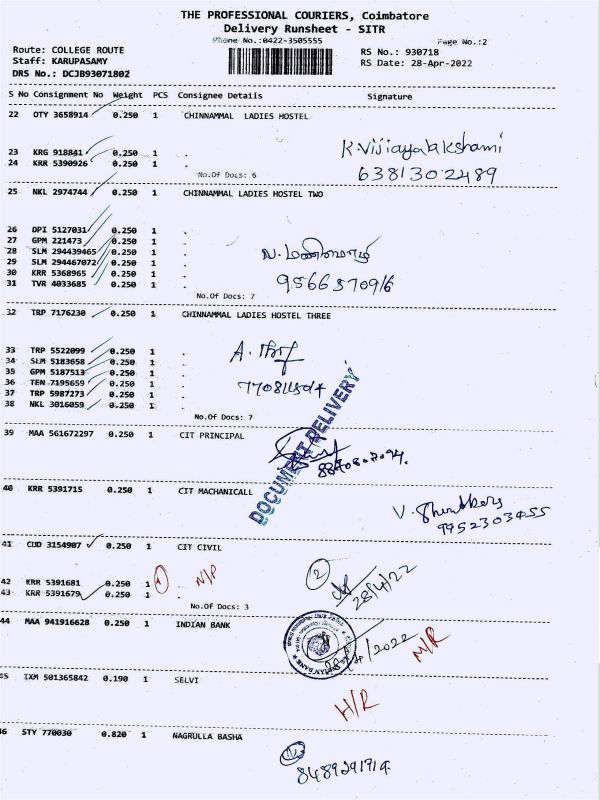 THE PROFESSIONAL COURIERS, Coimbatore
Delivery Runsheet - SITR
Phone No.:0422-3505555
Page No.:2
Route: COLLEGE ROUTE
RS No.: 930718
Staff: KARUPASAMY
RS Date: 28-Apr-2022
DRS No.: DCJB93071802
S No Consignment No Weight PCS Consignee Details Signature
22 OTY 3658914 0.250 1 CHINNAMMAL LADIES HOSTEL
K.Vijayalakshami
23 KRG 918841 0.250 1 .
24 KRR 5390926 0.250 1 .
6381302489
No.Of Docs: 6
25 NKL 2974744 0.250 1 CHINNAMMAL LADIES HOSTEL TWO
26 DPI 5127031 0.250 1 .
27 GPM 221473 0.250 1 .
28 SLM 294439465 0.250 1 .
29 SLM 294467072 0.250 1 .
30 KRR 5368965 0.250 1 .
31 TVR 4033685 0.250 1 .
9566370916
No.Of Docs: 7
32 TRP 7176230 0.250 1 CHINNAMMAL LADIES HOSTEL THREE
33 TRP 5522099 0.250 1 .
34 SLM 5183658 0.250 1 .
35 GPM 5187513 0.250 1 .
36 TEN 7195659 0.250 1 .
37 TRP 5987273 0.250 1 .
38 NKL 3016059 0.250 1 .
No.Of Docs: 7
DOCUMENT DELIVERY
39 MAA 561672297 0.250 1 CIT PRINCIPAL
40 KRR 5391715 0.250 1 CIT MACHANICALL
9952303455
41 CUD 3154907 0.250 1 CIT CIVIL
2
28/4/22
42 KRR 5391681 0.250 1 . N/P
43 KRR 5391679 0.250 1 .
No.Of Docs: 3
44 MAA 941916628 0.250 1 INDIAN BANK
N/R
45 IXM 501365842 0.190 1 SELVI
H/R
46 STY 770030 0.820 1 NAGRULLA BASHA